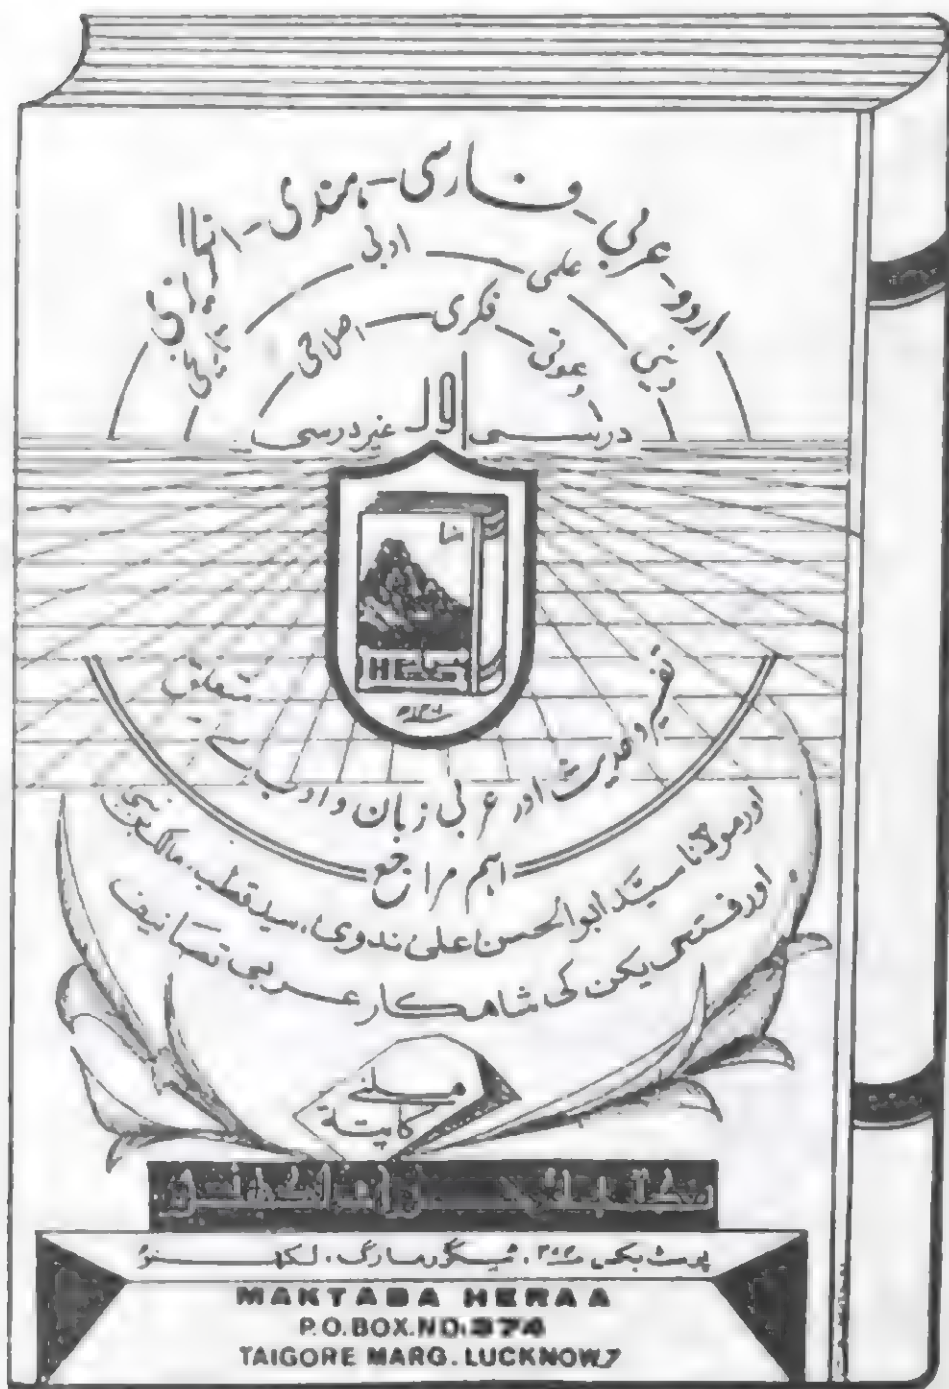 اردو - عربی - فارسی - ہندی - انگریزی
دینی علمی ادبی تاریخی
دعوتی فکری اصلاحی
درسی اور غیر درسی
HERAA
تفسیر و حدیث اور عربی زبان و ادب سے متعلق
اہم مراجع
اور مولانا سیّد ابوالحسن علی ندوی، سید قطب، مالک بن نبی
اور فتحی یکن کی شاہکار عربی تصانیف
ملنے
کا پتہ
مکتبہ حراء لکھنؤ
پوسٹ بکس، ٹیگور مارگ، لکھنؤ
MAKTABA HERAA
P.O.BOX.NO.374
TAIGORE MARG. LUCKNOW.7